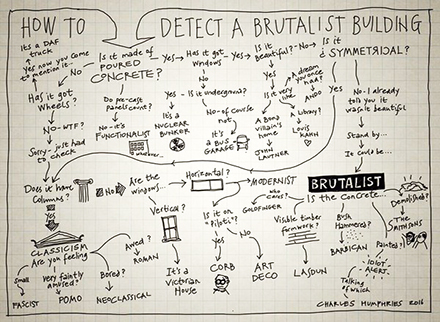 HOW TO DETECT A BRUTALIST BUILDING
It's a DAF
truck
Yes now you come
to mention it
No
Has it got
Wheels?
No - WTF?
Sorry - just had
to check
Is it made of
POURED
CONCRETE?
Yes
Has it got
Windows
Yes
Is it
Beautiful?
No
Is it
¿ SYMMETRICAL?
Do pre-cast
Panels count?
No - it's
FUNCTIONALIST
or whatever
No
Yes - Is it underground?
It's a
NUCLEAR
BUNKER
No - of course
not
It's
a BUS
GARAGE
Yes
Is it
very like
A dream
you once
had?
ANDO
A Bond
villain's
home
JOHN
LAUTNER
A Library?
LOUIS
KAHN
Yes
No - I already
told you it
wasn't beautiful
Stand by...
It could be...
Does it have
Columns?
No
Are the
windows...
Horizontal?
MODERNIST
BRUTALIST
Yes
Vertical?
It's a
Victorian
House
Who cares?
GOLDFINGER
Is the Concrete...
Is it on
"Piloti"?
Yes
CORB
No
ART
DECO
Visible timber
formwork?
LASDUN
Bush
Hammered?
BARBICAN
Demolished?
THE
SMITHSONS
Painted?
IDIOT
ALERT
Talking
of which
CLASSICISM
Are you feeling
Small
FASCIST
Very faintly
amused?
POMO
Bored?
NEOCLASSICAL
Awed?
ROMAN
CHARLES HUMPHRIES 2016